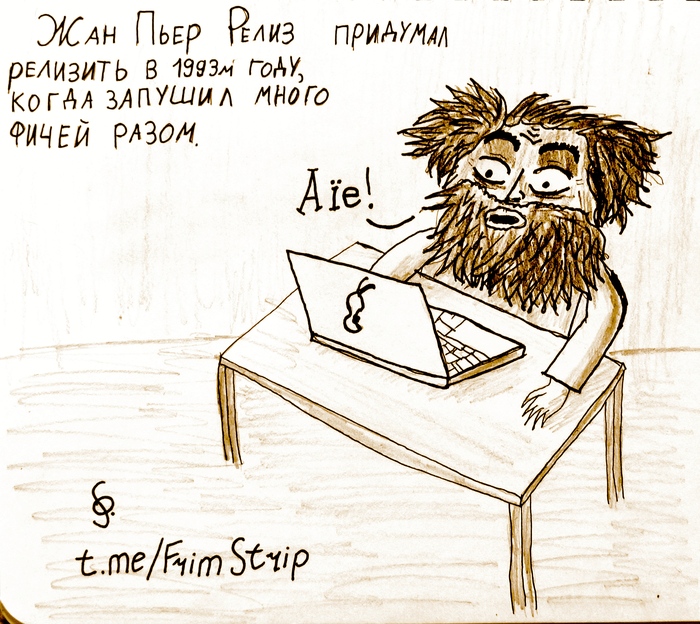 Жан Пьер Релиз придумал
релизить в 1993м году,
когда запушил много
фичей разом.
Аїе!
t.me/FrimStrip